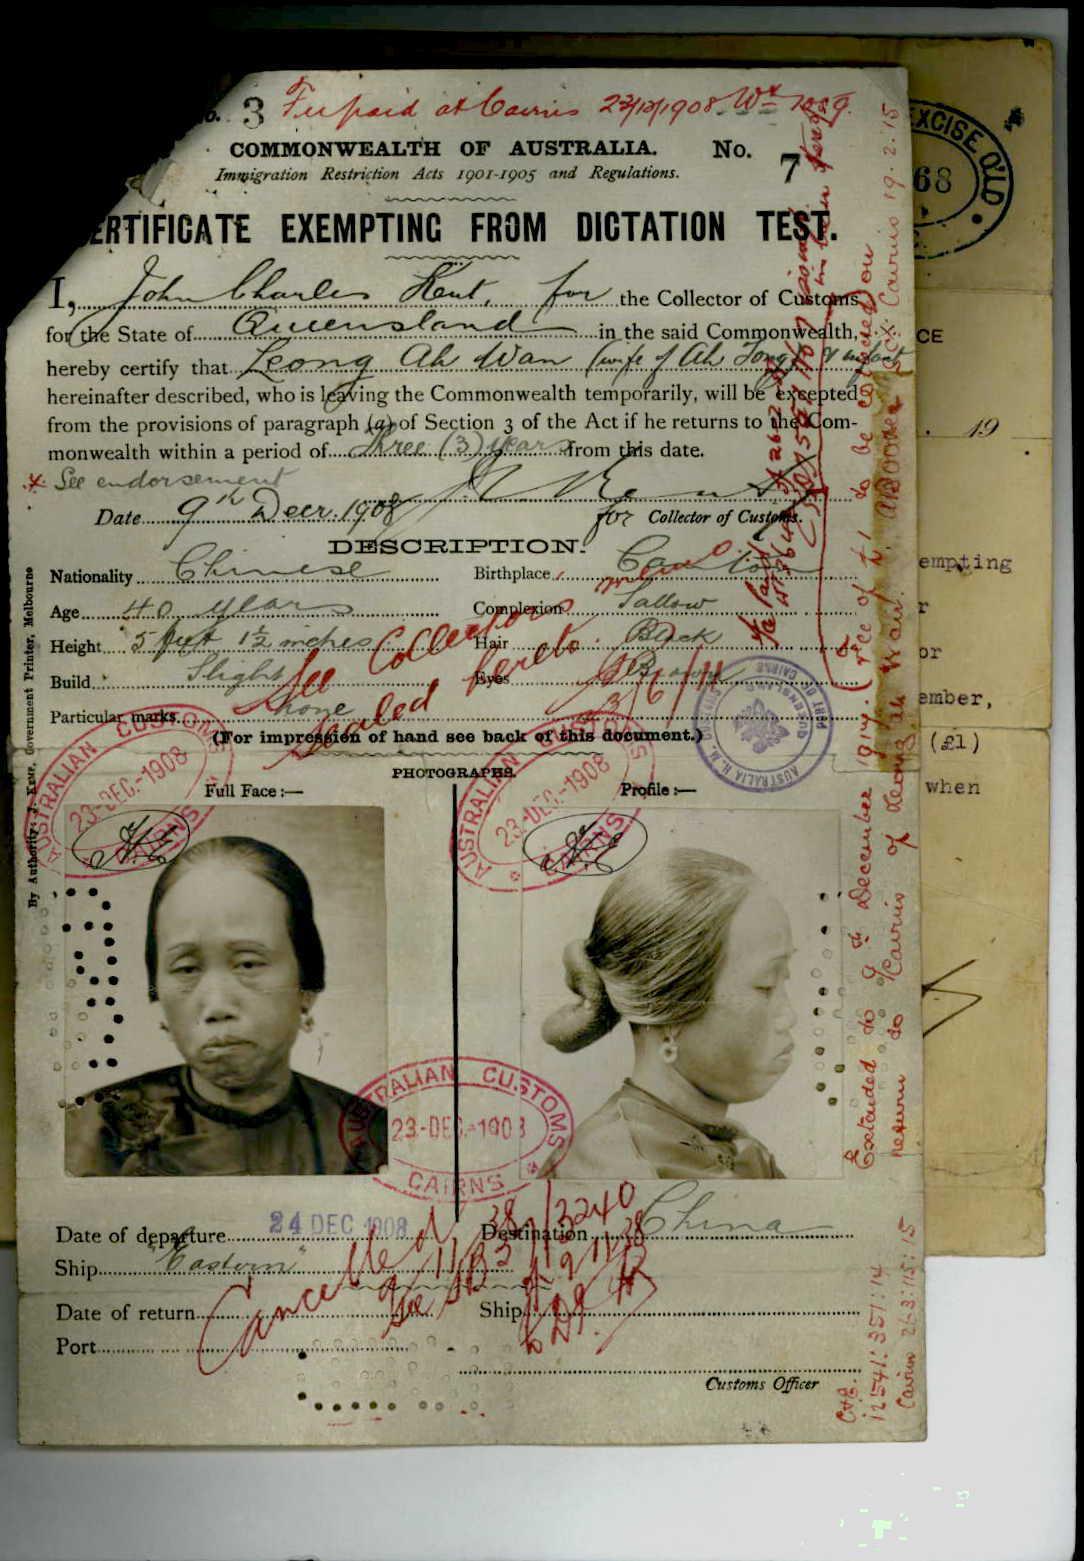 No. 3 Fee paid at Cairns 23/12/1908
COMMONWEALTH OF AUSTRALIA. No. 7
Immigration Restriction Acts 1901-1905 and Regulations.
ERTIFICATE EXEMPTING FROM DICTATION TEST.
I, John Charles Kent, for the Collector of Customs
for the State of Queensland in the said Commonwealth,
hereby certify that Leong Ah Wan (wife of Ah Tong) & infant
hereinafter described, who is leaving the Commonwealth temporarily, will be excepted
from the provisions of paragraph (a) of Section 3 of the Act if he returns to the Com-
monwealth within a period of Three (3) years from this date.
* See endorsement
Date 9th Decr. 1908
for Collector of Customs.
DESCRIPTION.
Nationality Chinese Birthplace Canton
Age 40 years Complexion Sallow
Height 5 feet 1½ inches Hair Black
Build Slight Eyes Brown
Particular marks none
See Collectors memo
sealed hereto
3/6/11
(For impression of hand see back of this document.)
PHOTOGRAPHS.
Full Face :— Profile :—
AUSTRALIAN CUSTOMS
23-DEC.-1908
CAIRNS
AUSTRALIAN CUSTOMS
23-DEC.-1908
CAIRNS
AUSTRALIAN CUSTOMS
23-DEC.-1908
CAIRNS
Date of departure 24 DEC 1908 Destination China
Ship "Eastern"
Date of return Ship
Port
Customs Officer
Cancelled
By Authority: J. KEMP, Government Printer, Melbourne
Extended to 9th December 1914. (Fee of £1 to be collected on
return to Cairns of Leong Ah Wan.
Cairns 19.2.15
C & E.
12541:351:14
Cairns 263:115:15
EXCISE Q'LD
68
CE
19
empting
r
or
ember,
(£1)
when